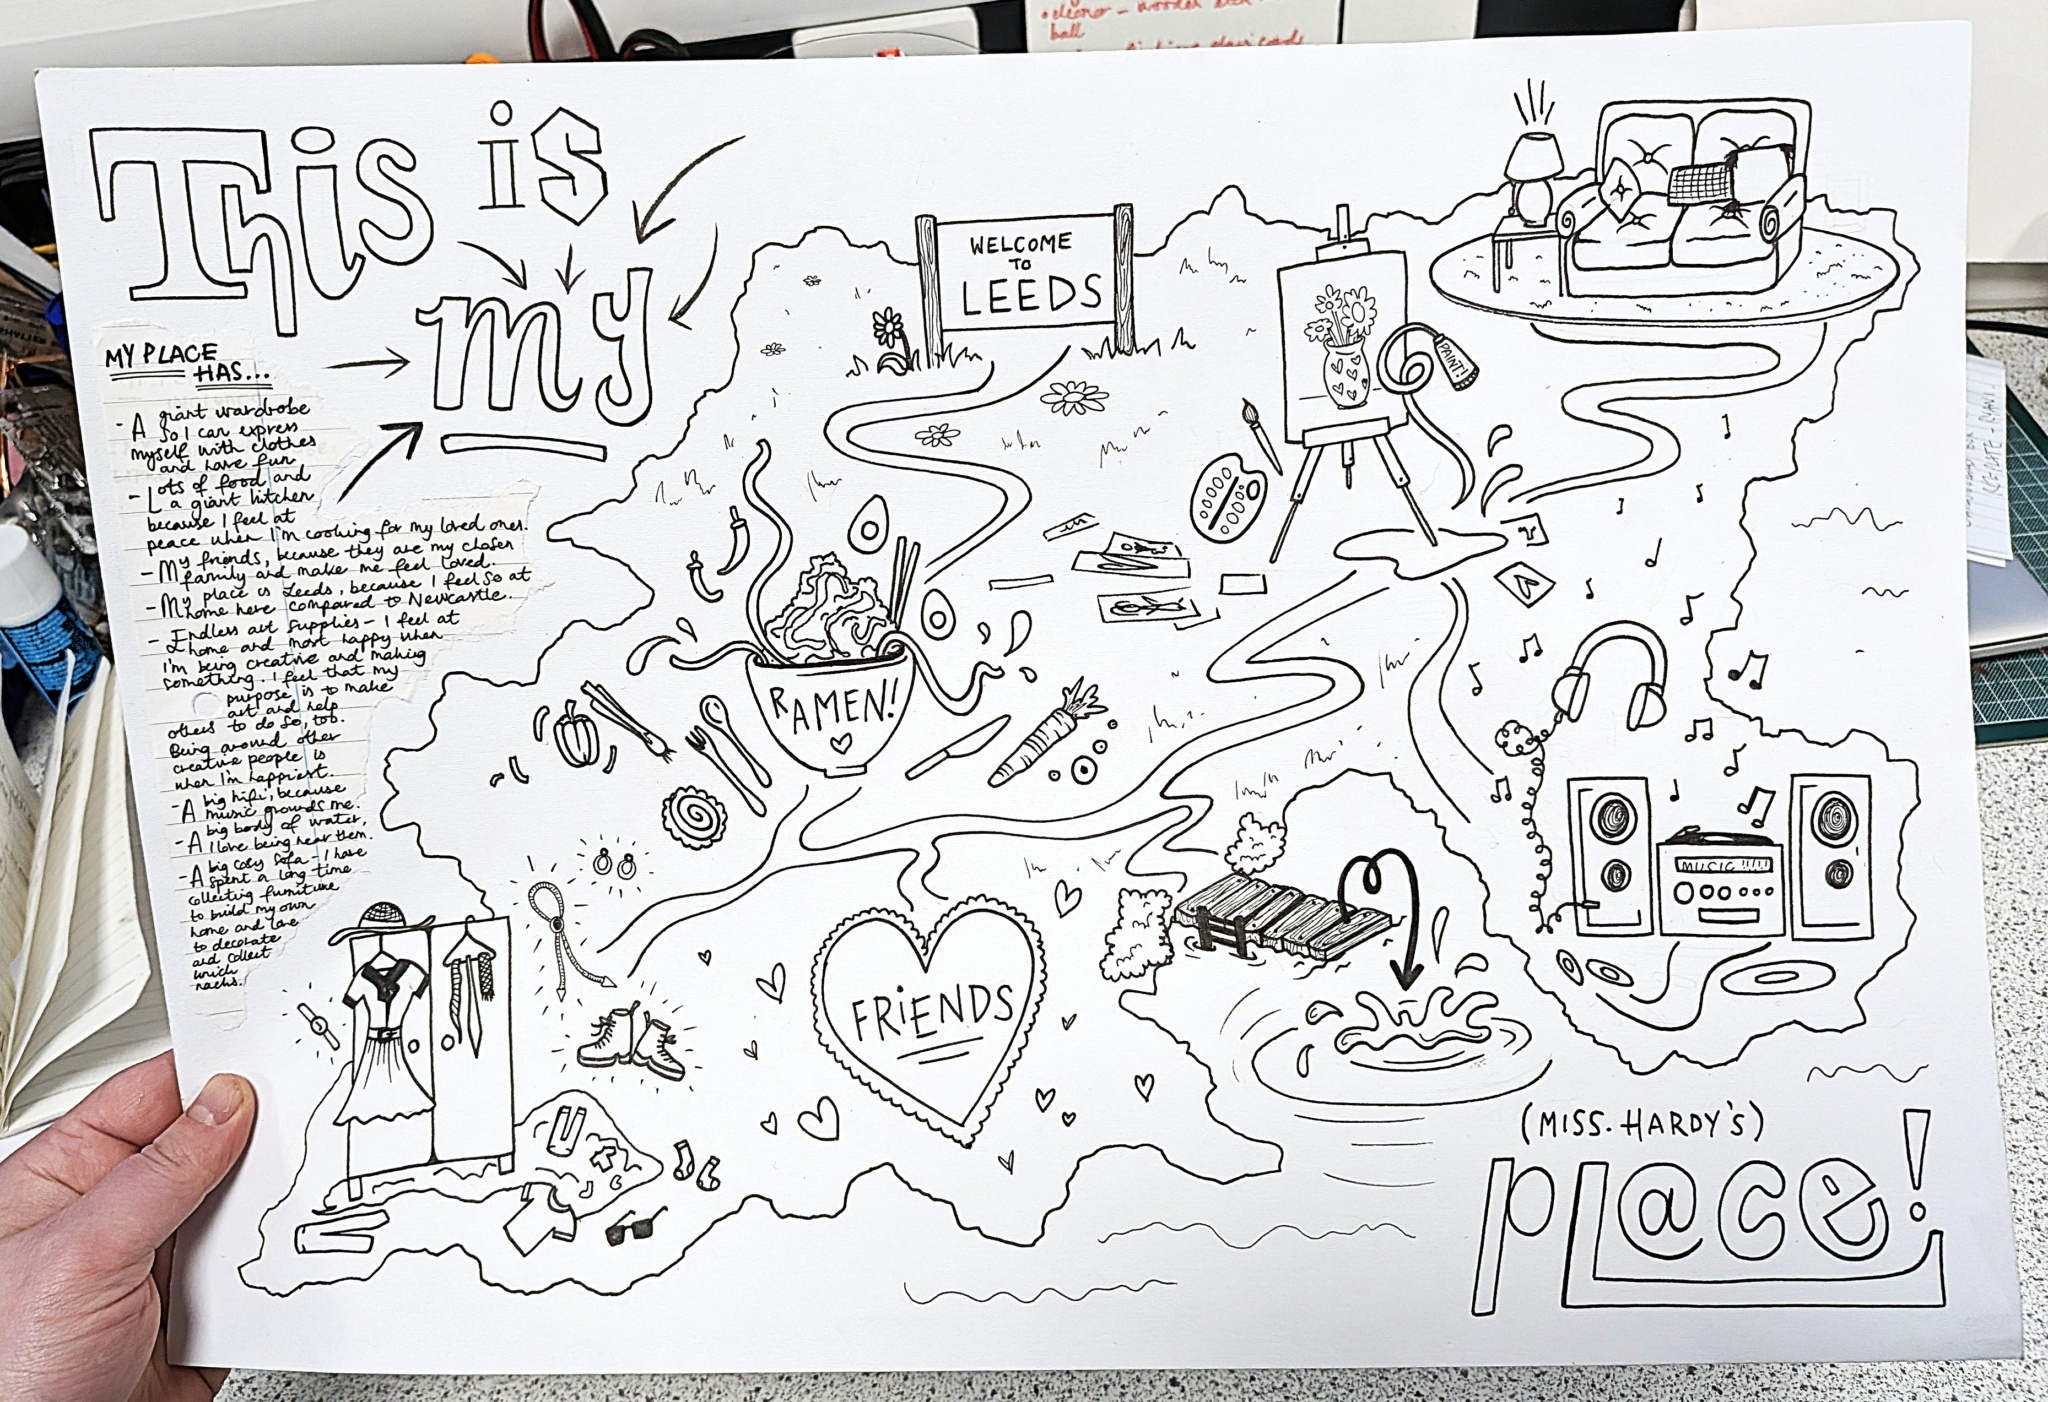 This is
my
MY PLACE
HAS...
- A giant wardrobe
so I can express
myself with clothes
and have fun
- Lots of food and
a giant kitchen
because I feel at
peace when I'm cooking for my loved ones.
- My friends, because they are my chosen
family and make me feel loved.
- My place is Leeds, because I feel so at
home here compared to Newcastle.
- Endless art supplies - I feel at
home and most happy when
I'm being creative and making
something. I feel that my
purpose is to make
art and help
others to do so, too.
Being around other
creative people is
when I'm happiest.
- A big hifi, because
music grounds me.
- A big body of water,
I love being near them.
- A big cosy sofa - I have
spent a long time
collecting furniture
to build my own
home and love
to decorate
and collect
nacks.
WELCOME
TO
LEEDS
PAINT!
RAMEN!
MUSIC !!!!!
FRiENDS
(MISS. HARDY'S)
pl@ce!
ball